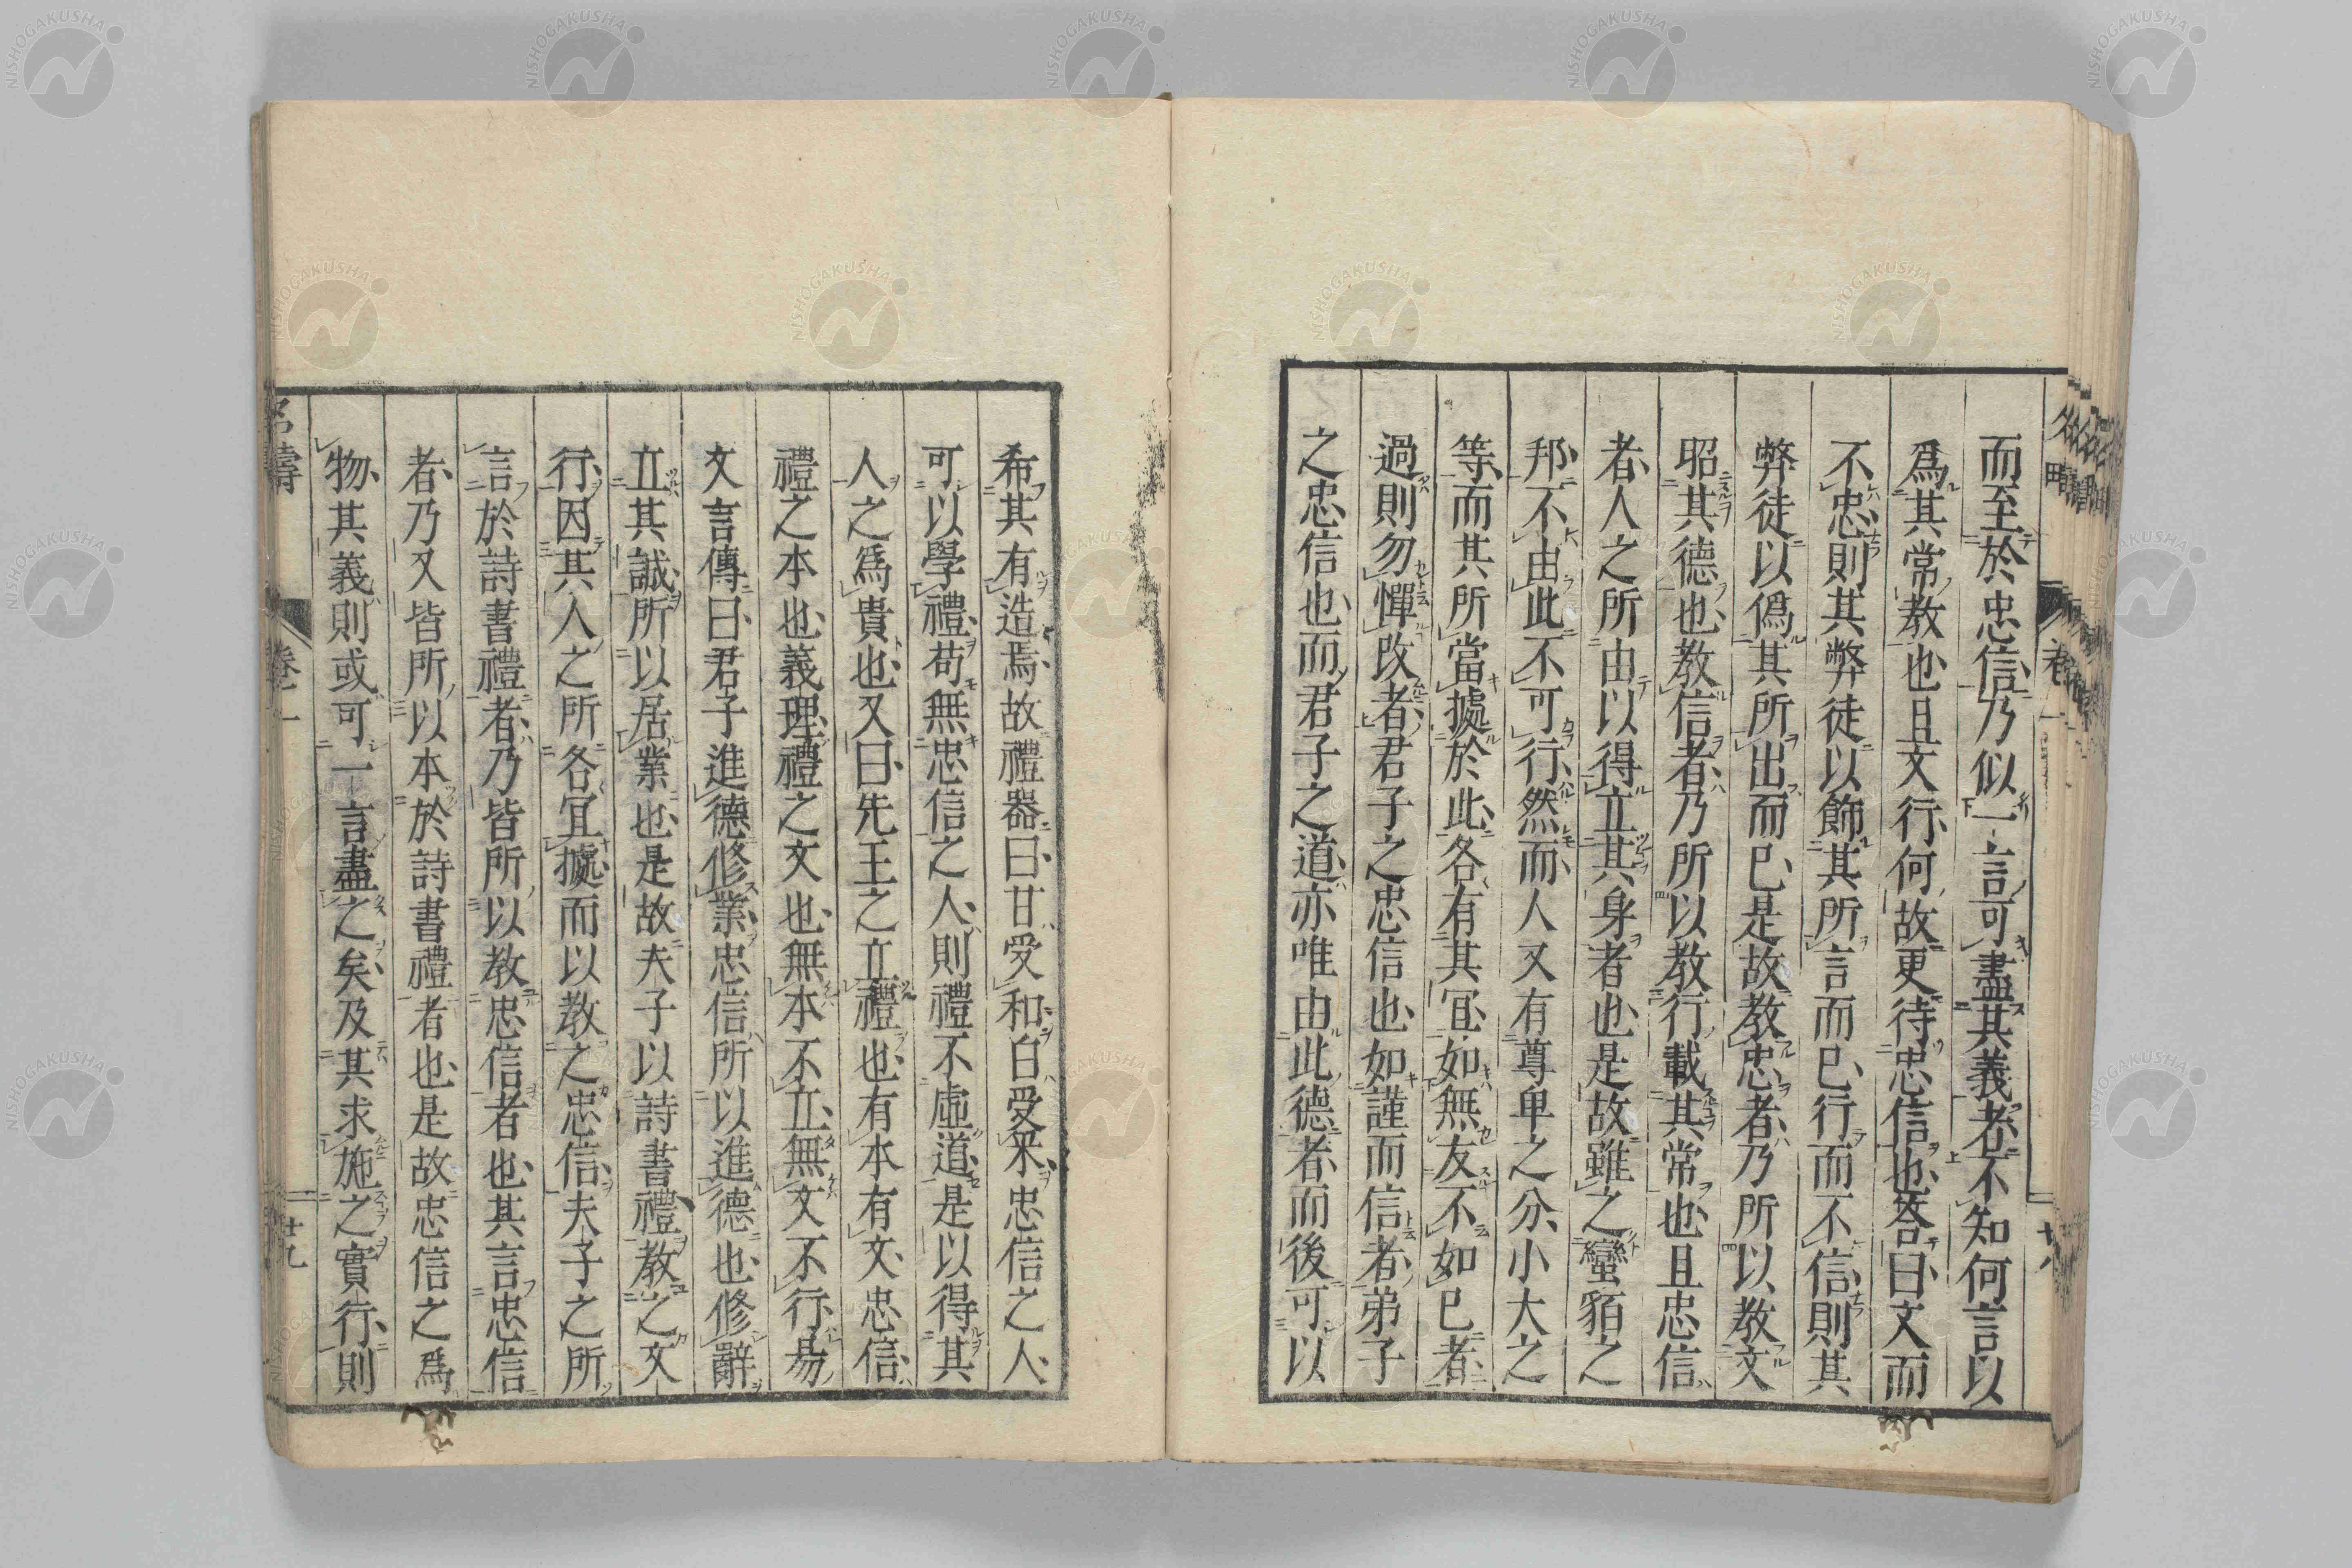 而至於忠信乃似一言可盡其義者不知何言以
爲其常教也且文行何故更待忠信也答曰文而
不忠則其弊徒以飾其所言而已行而不信則其
弊徒以僞其所出而已是故教忠者乃所以教文
昭其德也教信者乃所以教行載其常也且忠信
者人之所由以得立其身者也是故雖之蠻貊之
邦不由此不可行然而人又有尊卑之分小大之
等而其所當據於此各有其宜如無友不如已者
過則勿憚改者君子之忠信也如謹而信者弟子
之忠信也而君子之道亦唯由此德者而後可以
希其有造焉故禮器曰甘受和白受采忠信之人
可以學禮苟無忠信之人則禮不虛道是以得其
人之爲貴也又曰先王之立禮也有本有文忠信
禮之本也義理禮之文也無本不立無文不行易
文言傳曰君子進德修業忠信所以進德也修辭
立其誠所以居業也是故夫子以詩書禮教之文
行因其人之所各宜據而以教之忠信夫子之所
言於詩書禮者乃皆所以教忠信者也其言忠信
者乃又皆所以本於詩書禮者也是故忠信之爲
物其義則或可一言盡之矣及其求施之實行則
卷一
廿九
NISHOGAKUSHA